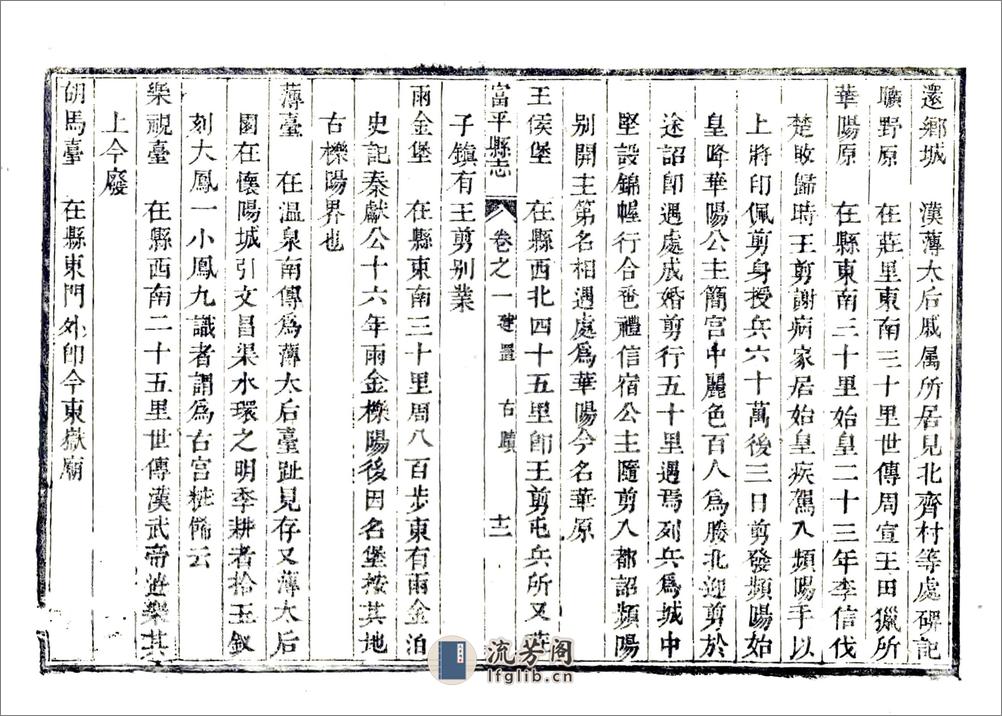 還鄉城　漢薄太后戚属所居見北齊村等處碑記
曠野原　在莊里東南三十里世傳周宣王田獵所
華陽原　在縣東南三十里始皇二十三年李信伐
楚敗歸時王剪謝病家居始皇疾駕入頻陽手以
上將印佩剪身授兵六十萬後三日剪發頻陽始
皇降華陽公主簡宮中麗色百人爲媵北迎剪於
途詔即遇處成婚剪行五十里遇焉列兵爲城中
堅設錦幄行合卺禮信宿公主隨剪入都詔頻陽
别開主第名相遇處爲華陽今名華原
王侯堡　在縣西北四十五里即王剪屯兵所又莊
富平縣志　卷之一　建置　古蹟　十二
子鎮有王剪别業
雨金堡　在縣東南三十里周八百步東有雨金泊
史記秦獻公十六年雨金櫟陽後因名堡按其地
古櫟陽界也
薄臺　在温泉南傳爲薄太后臺趾見存又薄太后
園在懷陽城引文昌渠水環之明季耕者拾玉釵
刻大鳳一小鳳九識者謂爲古宫粧俻云
樂視臺　在縣西南二十五里世傳漢武帝遊樂其
上今廢
胡馬臺　在縣東門外即今東嶽廟
流芳阁
lfglib.cn